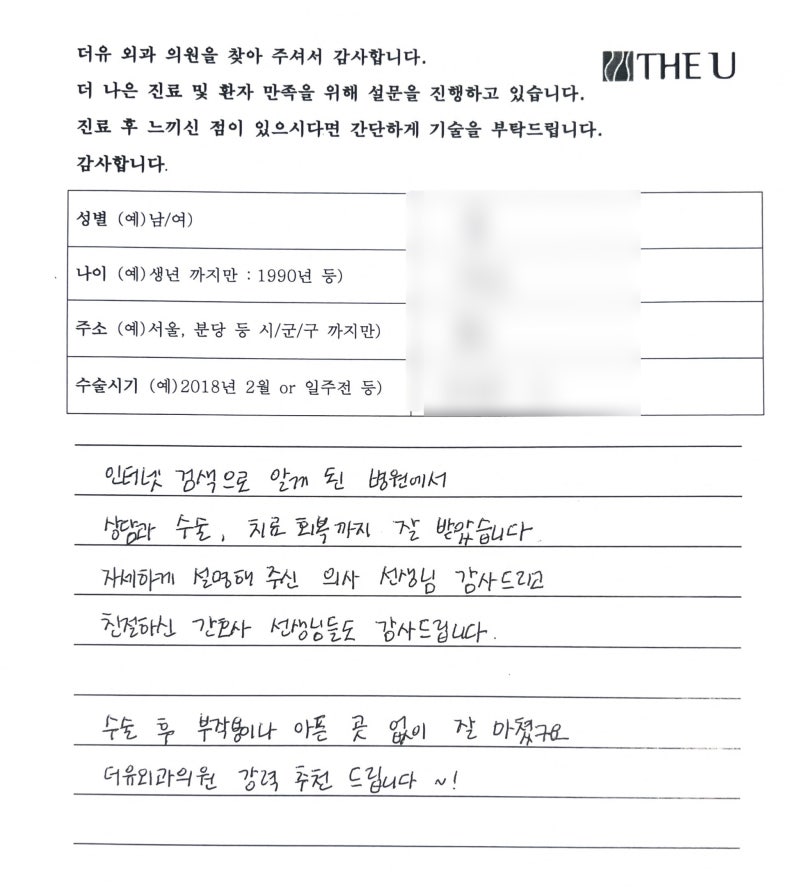 더유 외과 의원을 찾아 주셔서 감사합니다.
THE U
더 나은 진료 및 환자 만족을 위해 설문을 진행하고 있습니다.
진료 후 느끼신 점이 있으시다면 간단하게 기술을 부탁드립니다.
감사합니다.
성별 (예)남/여)
나이 (예)생년 까지만 : 1990년 등)
주소 (예)서울, 분당 등 시/군/구 까지만)
수술시기 (예)2018년 2월 or 일주전 등)
인터넷 검색으로 알게 된 병원에서
상담과 수술, 치료 회복까지 잘 받았습니다.
자세하게 설명해 주신 의사 선생님 감사드리고
친절하신 간호사 선생님들도 감사드립니다.
수술 후 부작용이나 아픈 곳 없이 잘 마쳤구요
더유외과의원 강력 추천 드립니다 ~!